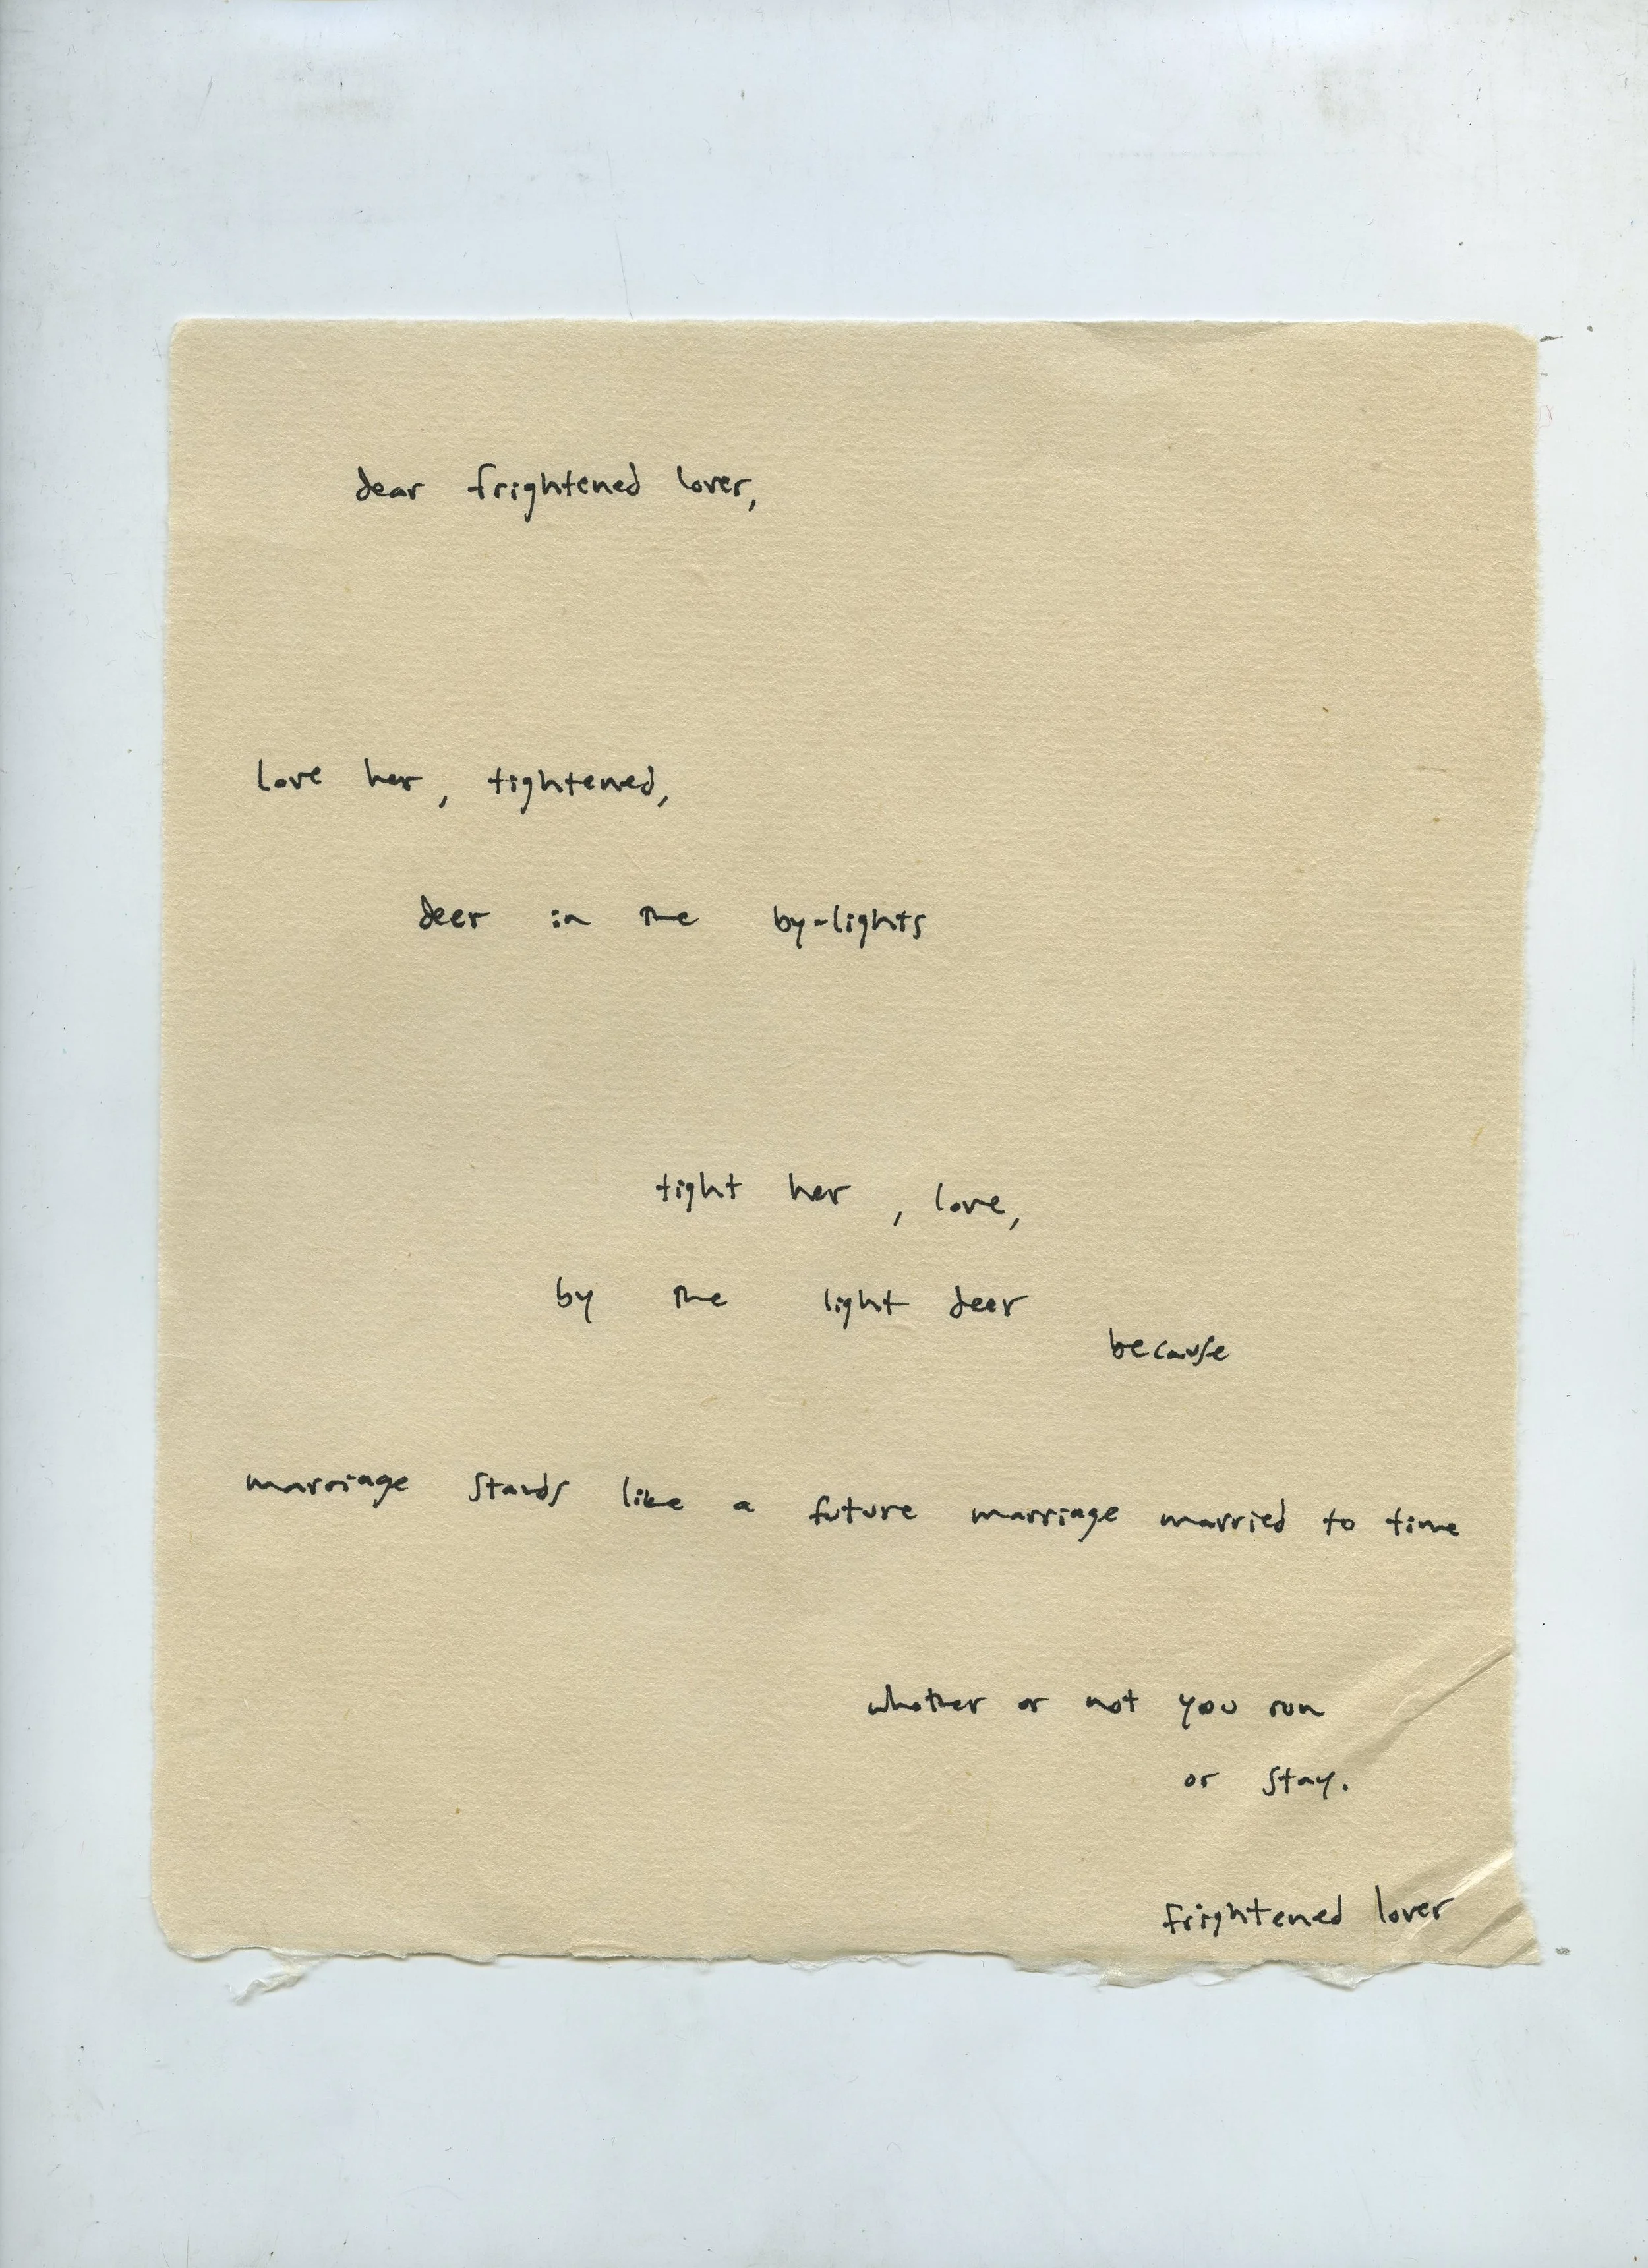 dear frightened lover,
love her, tightened,
deer in the by-lights
tight her, love,
by the light deer
because
marriage stands like a future marriage married to time
whether or not you run
or stay.
frightened lover